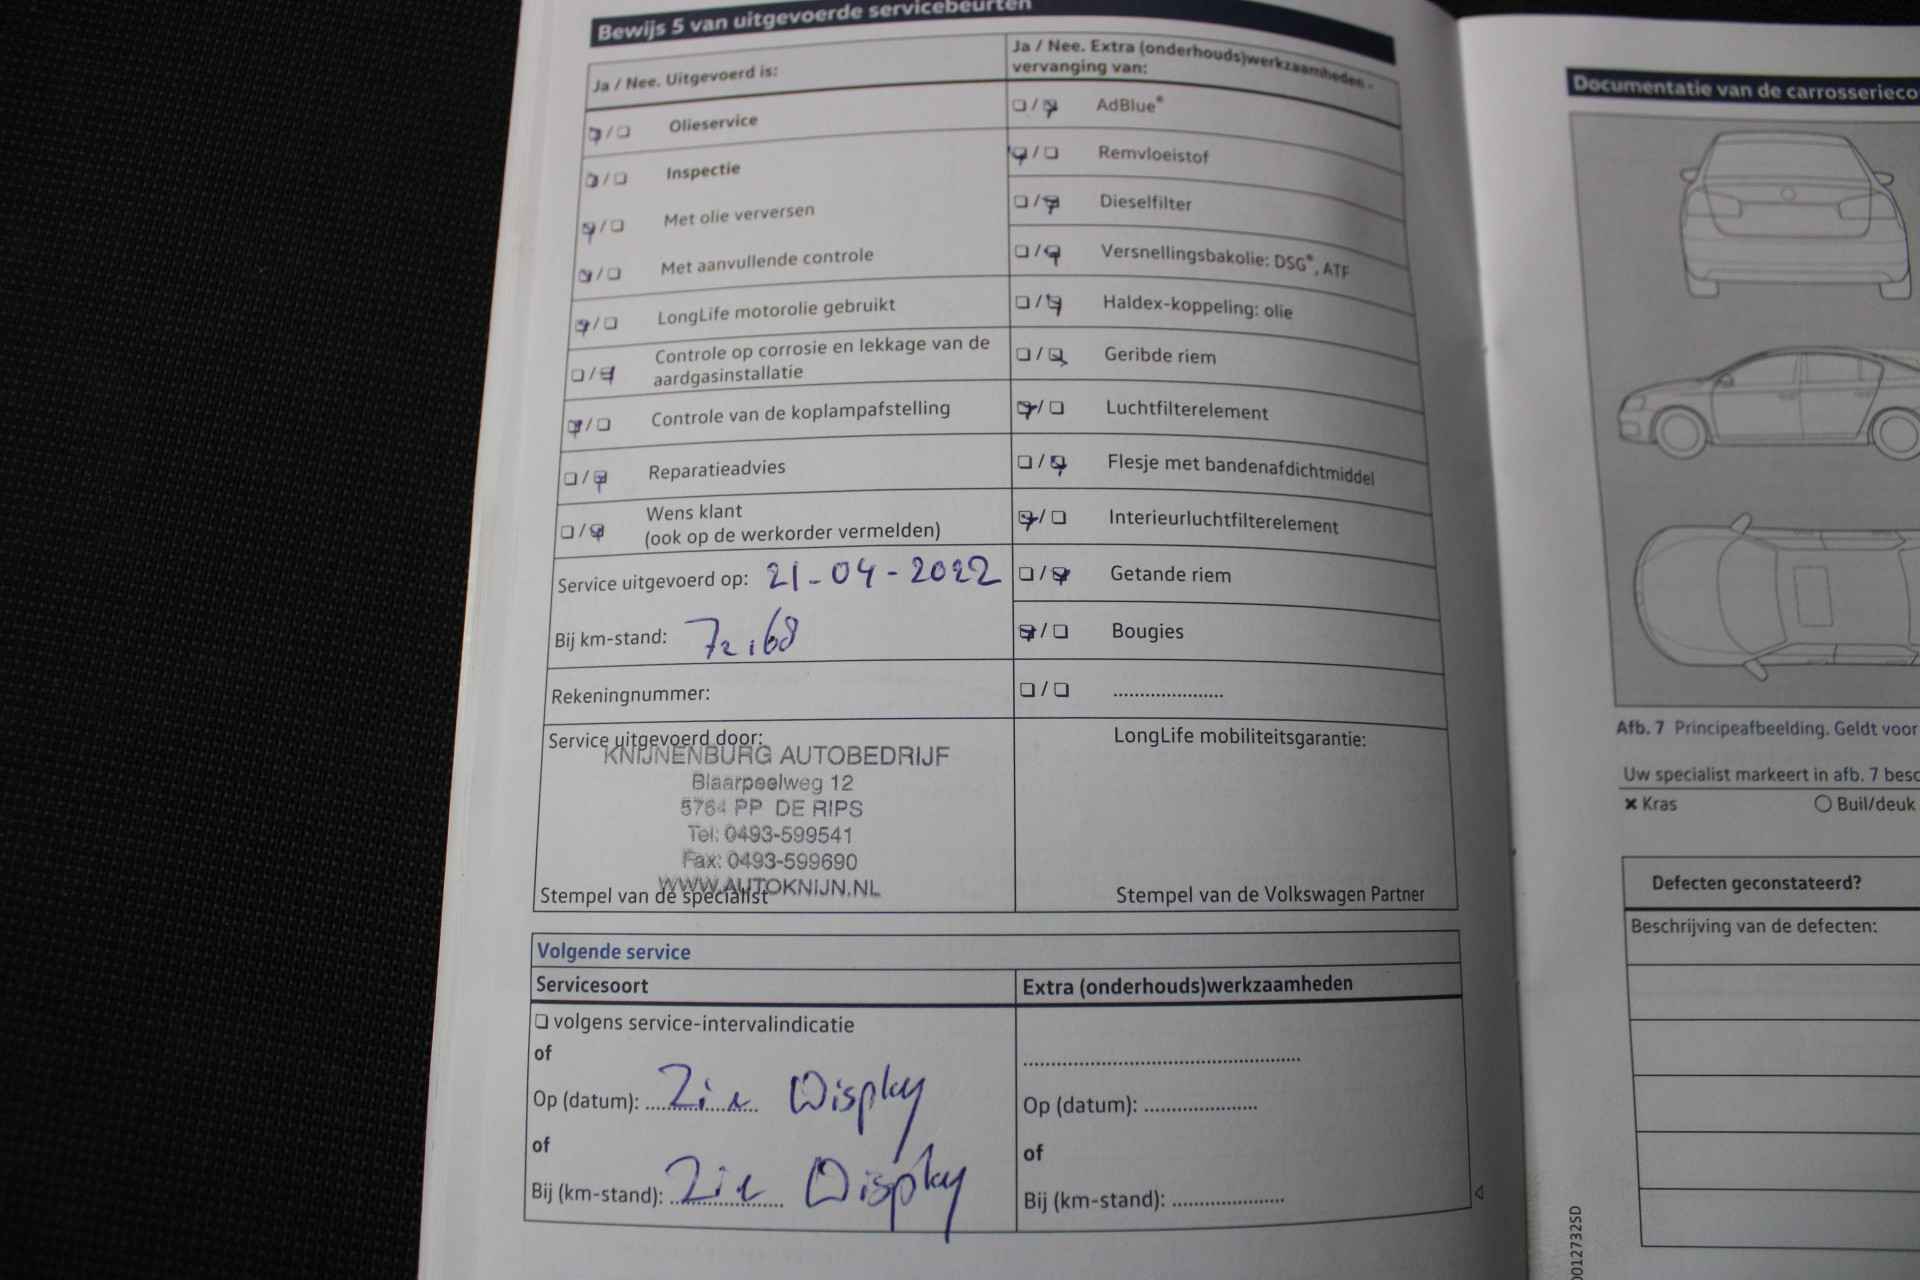 Bewijs 5 van uitgevoerde servicebeurten
Ja / Nee. Uitgevoerd is:
Olieservice
Inspectie
Met olie verversen
Met aanvullende controle
LongLife motorolie gebruikt
Controle op corrosie en lekkage van de
aardgasinstallatie
Controle van de koplampafstelling
Reparatieadvies
Wens klant
(ook op de werkorder vermelden)
Service uitgevoerd op: 21-04-2022
Bij km-stand:
Rekeningnummer:
Service uitgevoerd door:
KNIJNENBURG AUTOBEDRIJF
Blaarpeelweg 12
5764 PP DE RIPS
Tel: 0493-599541
Fax: 0493-599690
WWW.AUTOKNIJN.NL
Stempel van de specialist
Ja / Nee. Extra (onderhouds)werkzaamheden -
vervanging van:
AdBlue®
Remvloeistof
Dieselfilter
Versnellingsbakolie: DSG®, ATF
Haldex-koppeling: olie
Geribde riem
Luchtfilterelement
Flesje met bandenafdichtmiddel
Interieurluchtfilterelement
Getande riem
Bougies
.....................
LongLife mobiliteitsgarantie:
Stempel van de Volkswagen Partner
Volgende service
Servicesoort
volgens service-intervalindicatie
of
Op (datum): Zie Display
of
Bij (km-stand): Zie Display
Extra (onderhouds)werkzaamheden
....................................................
Op (datum): .....................
of
Bij (km-stand): .....................
Documentatie van de carrosserieco
Afb. 7 Principeafbeelding. Geldt voor
Uw specialist markeert in afb. 7 besc
× Kras
○ Buil/deuk
Defecten geconstateerd?
Beschrijving van de defecten:
0012732SD